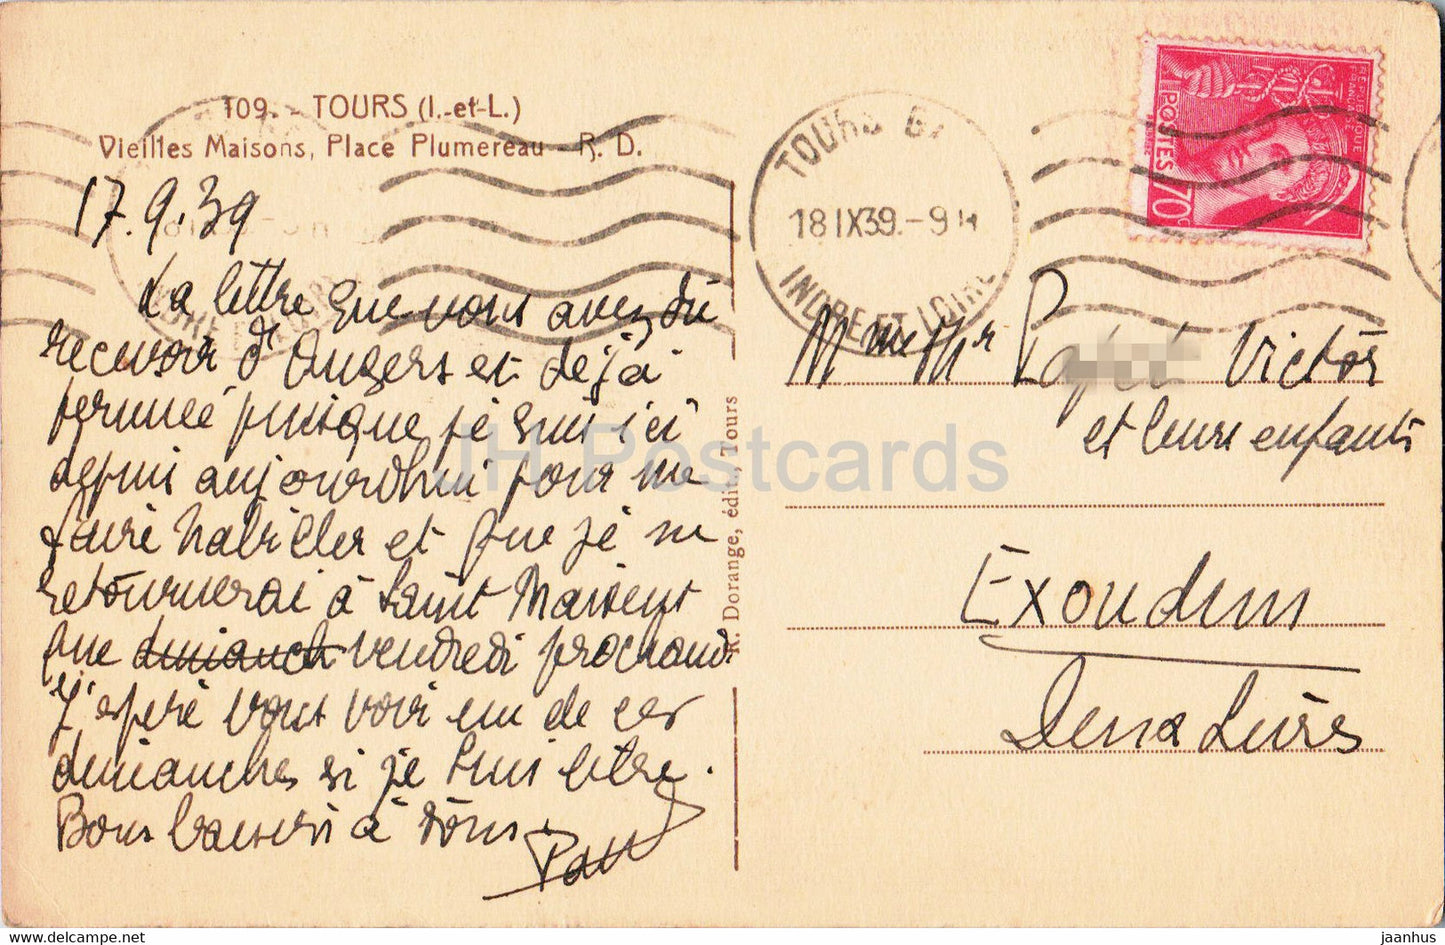 109. - TOURS (I.-et-L.)
Vieilles Maisons, Place Plumereau - R. D.
17.9.39
La lettre que vous avez dû
recevoir d'Angers est déjà
périmée puisque je suis ici
depuis aujourdhui pour me
faire habiller et que je ne
retournerai à Saint Maixent
que dimanche vendredi prochain.
J'espere vous voir un de ces
dimanches si je suis libre.
Bons baisers à tous.
R. Dorange, édit., Tours
TOURS
18 IX 39. - 9 H
INDRE ET LOIRE
REPUBLIQUE
FRANÇAISE
POSTES
70c
Mme Mr Victor
et leurs enfants
Exoudun
Deux Sèvres
JH Postcards
www.delcampe.net
jaanhus